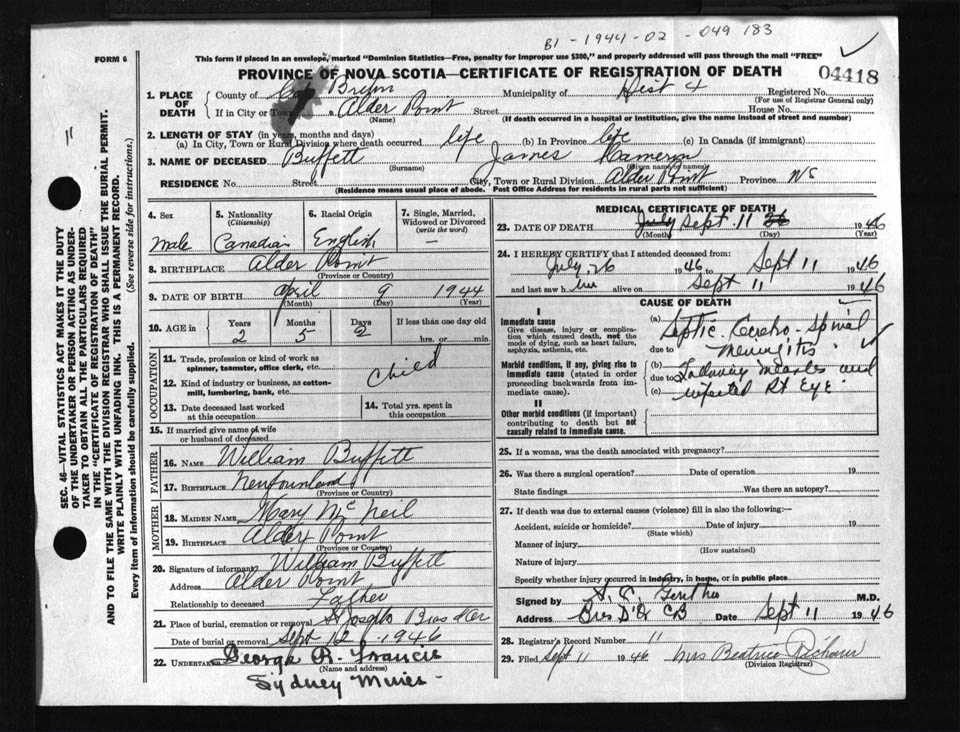 B1 - 1944 - 02 - 049 183
FORM 6
This form if placed in an envelope, marked "Dominion Statistics—Free, penalty for improper use $300," and properly addressed will pass through the mail "FREE"
PROVINCE OF NOVA SCOTIA—CERTIFICATE OF REGISTRATION OF DEATH
04418
1. PLACE OF DEATH
County of Breton Municipality of Dist 4 Registered No.
(For use of Registrar General only)
If in City or Town Alder Point Street House No.
(Name) (If death occurred in a hospital or institution, give the name instead of street and number)
2. LENGTH OF STAY (in years, months and days)
(a) In City, Town or Rural Division where death occurred life (b) In Province life (c) In Canada (if immigrant)
3. NAME OF DECEASED Buffett James Cameron
(Surname) (Given name or names)
RESIDENCE No. Street City, Town or Rural Division Alder Point Province NS
(Residence means usual place of abode. Post Office Address for residents in rural parts not sufficient)
4. Sex 5. Nationality (Citizenship) 6. Racial Origin 7. Single, Married, Widowed or Divorced (write the word)
male Canadian English —
8. BIRTHPLACE Alder Point
(Province or Country)
9. DATE OF BIRTH April 9 1944
(Month) (Day) (Year)
10. AGE in Years Months Days If less than one day old
2 5 2 hrs. or min.
OCCUPATION
11. Trade, profession or kind of work as spinner, teamster, office clerk, etc. Child
12. Kind of industry or business, as cotton-mill, lumbering, bank, etc.
13. Date deceased last worked at this occupation
14. Total yrs. spent in this occupation
15. If married give name of wife or husband of deceased
FATHER
16. NAME William Buffett
17. BIRTHPLACE Newfoundland
(Province or Country)
MOTHER
18. MAIDEN NAME Mary McNeil
19. BIRTHPLACE Alder Point
(Province or Country)
20. Signature of informant William Buffett
Address Alder Point
Relationship to deceased Father
21. Place of burial, cremation or removal St Josephs Bras d'Or
Date of burial or removal Sept 12 1946
22. UNDERTAKER George R. Francis
(Name and address)
Sydney Mines
MEDICAL CERTIFICATE OF DEATH
23. DATE OF DEATH July Sept 11 26 1946
(Month) (Day) (Year)
24. I HEREBY CERTIFY that I attended deceased from:
July 26 1946 to Sept 11 1946
and last saw him alive on Sept 11 1946
CAUSE OF DEATH
I
Immediate cause
Give disease, injury or complication which caused death, not the mode of dying, such as heart failure, asphyxia, asthenia, etc.
(a) Septic Cerebro-Spinal
due to Meningitis
Morbid conditions, if any, giving rise to immediate cause (stated in order proceeding backwards from immediate cause).
(b) Following measles and
due to
(c) infected Rt Eye
II
Other morbid conditions (if important) contributing to death but not causally related to immediate cause.
25. If a woman, was the death associated with pregnancy?
26. Was there a surgical operation? Date of operation 19
State findings Was there an autopsy?
27. If death was due to external causes (violence) fill in also the following:—
Accident, suicide or homicide? Date of injury 19
(State which)
Manner of injury
(How sustained)
Nature of injury
Specify whether injury occurred in industry, in home, or in public place
Signed by M.D.
Address Bras D'Or CB Date Sept 11 1946
28. Registrar's Record Number 11
29. Filed Sept 11 1946 Mrs Beatrice
(Division Registrar)
11
SEC. 46—VITAL STATISTICS ACT MAKES IT THE DUTY OF THE UNDERTAKER OR PERSON ACTING AS UNDERTAKER TO OBTAIN ALL THE PARTICULARS REQUIRED IN THE "CERTIFICATE OF REGISTRATION OF DEATH" AND TO FILE THE SAME WITH THE DIVISION REGISTRAR WHO SHALL ISSUE THE BURIAL PERMIT.
WRITE PLAINLY WITH UNFADING INK. THIS IS A PERMANENT RECORD.
Every item of information should be carefully supplied. (See reverse side for instructions.)